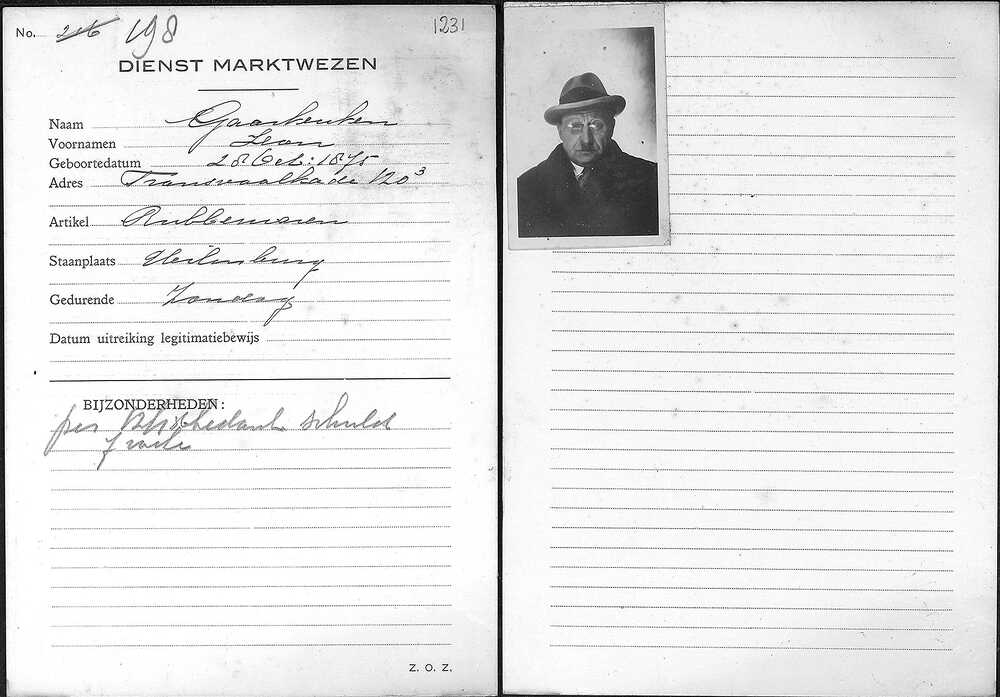 No. 216 198 1231
DIENST MARKTWEZEN
Naam Gaarkeuken
Voornamen Leon
Geboortedatum 28 Oct: 1875
Adres Transvaalkade 120³
Artikel Rubberwaren
Staanplaats Uilenburg
Gedurende Zondag
Datum uitreiking legitimatiebewijs
BIJZONDERHEDEN:
per schuld
Z. O. Z.